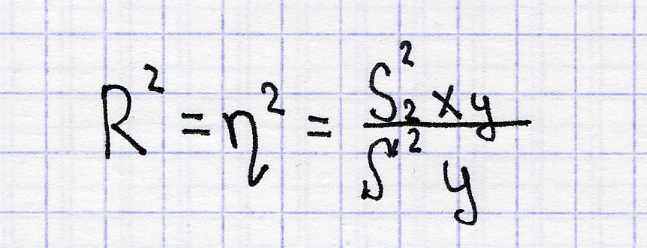 R² = η² = S₂² xy / S² y